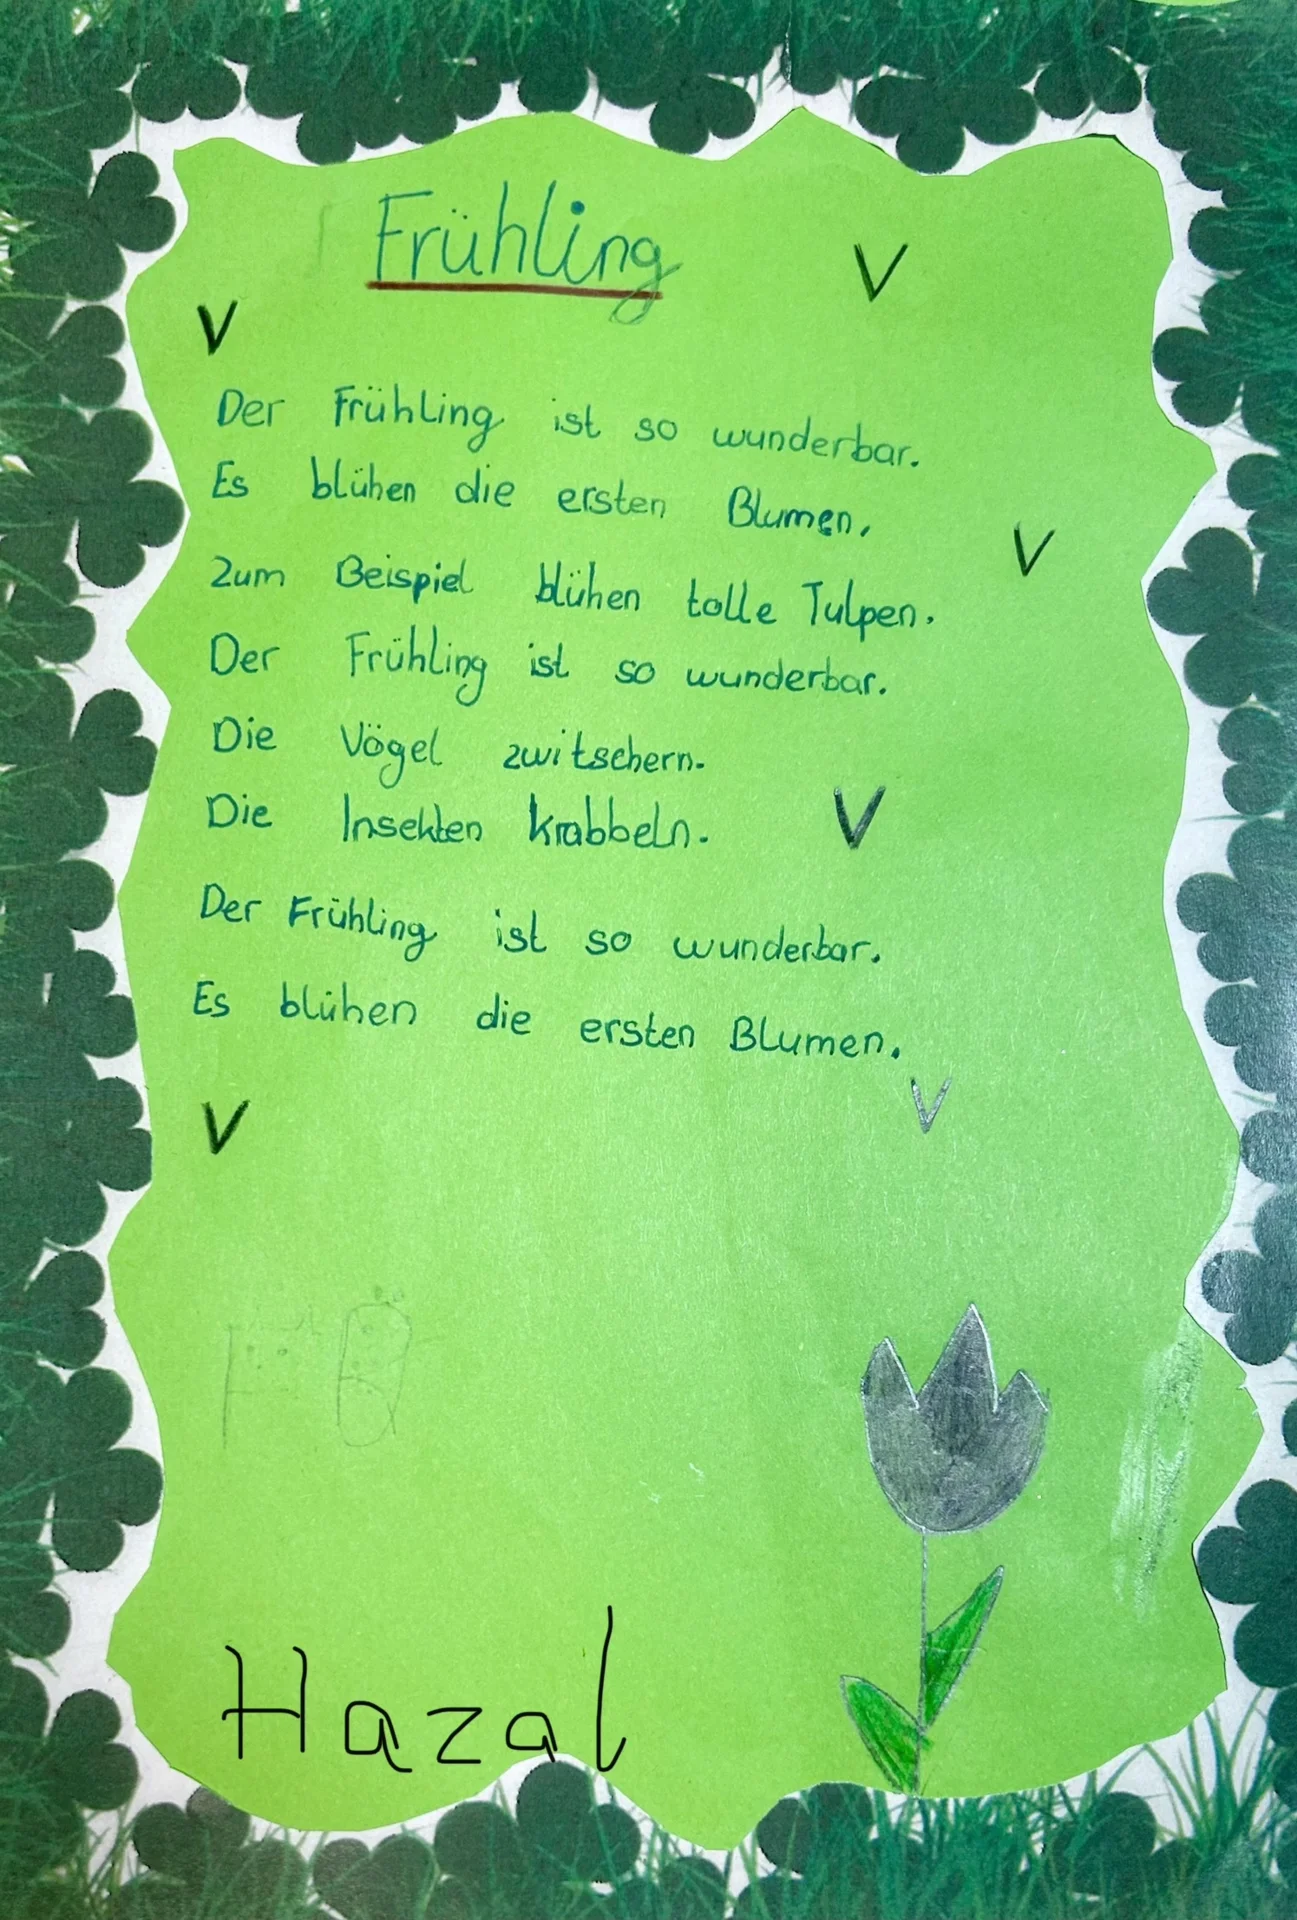 Frühling
Der Frühling ist so wunderbar.
Es blühen die ersten Blumen.
Zum Beispiel blühen tolle Tulpen.
Der Frühling ist so wunderbar.
Die Vögel zwitschern.
Die Insekten krabbeln.
Der Frühling ist so wunderbar.
Es blühen die ersten Blumen.
Hazal